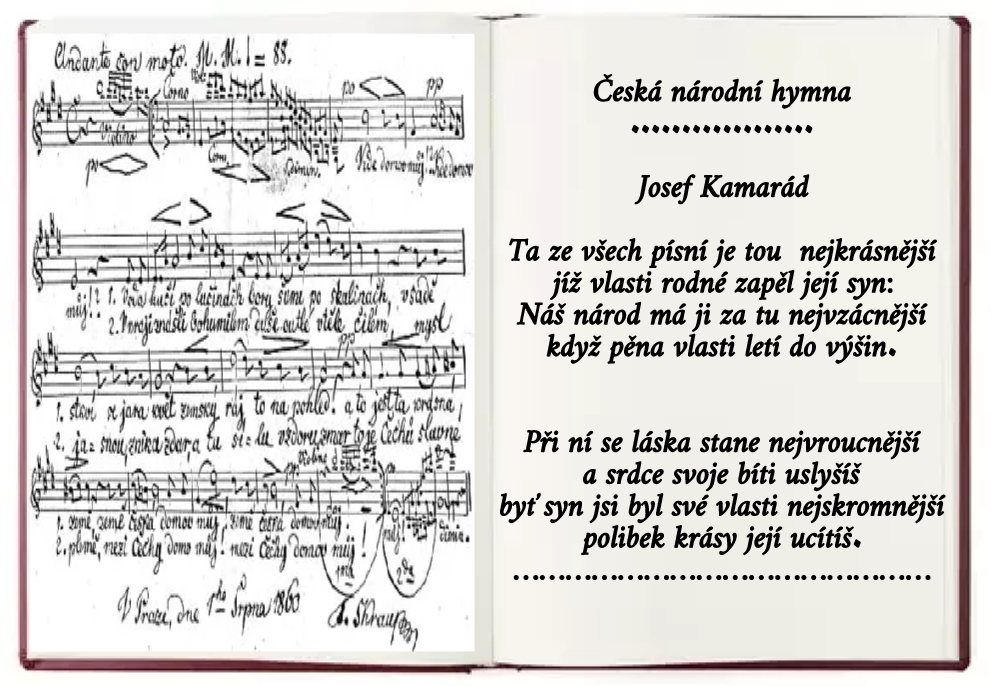 Andante con moto. M. M. ♩ = 88.
Corno
po
pp
Violino
po
Corni.
Dimin.
Kde domov můj! Kde domov
můj!? 1. Voda hučí po lučinách bory šumí po skalinách, v sadě
2. V kraji znáš-li bohumilém duše outlé v těle čilém, mysl
pp
1. stkví se jara květ zemský ráj to na pohled! a to jest ta krásná,
2. jasnou, znik a zdar, a tu sílu vzdoru zmar to je Čechů slavné
Violino
1. země, země česká domov můj, země česká domov můj.
2. plémě, mezi Čechy domov můj! mezi Čechy domov můj!
můj!
1ma
2da
V Praze, dne 1ho Srpna 1860
F. Skraup
Česká národní hymna
..................
Josef Kamarád
Ta ze všech písní je tou nejkrásnější
jíž vlasti rodné zapěl její syn:
Náš národ má ji za tu nejvzácnější
když pěna vlasti letí do výšin.
Při ní se láska stane nejvroucnější
a srdce svoje bíti uslyšíš
byť syn jsi byl své vlasti nejskromnější
polibek krásy její ucítíš.
………………………………………